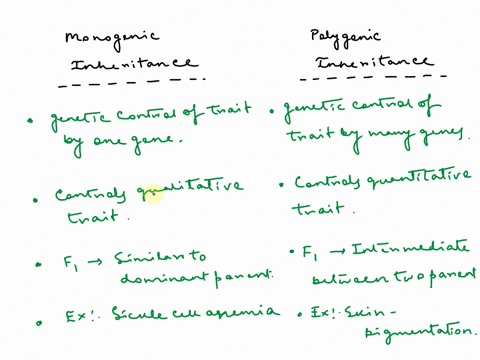 Monogenic
Inheritance
• genetic control of trait
by one gene.
• Controls qualitative
trait.
• F1 → Similar to
dominant parent.
• Ex!. Sicule cell anemia
Polygenic
Inheritance
• genetic control of
trait by many genes.
• Controls quantitative
trait.
• F1 → Intermediate
between two parent
• Ex!. Skin-
pigmentation.